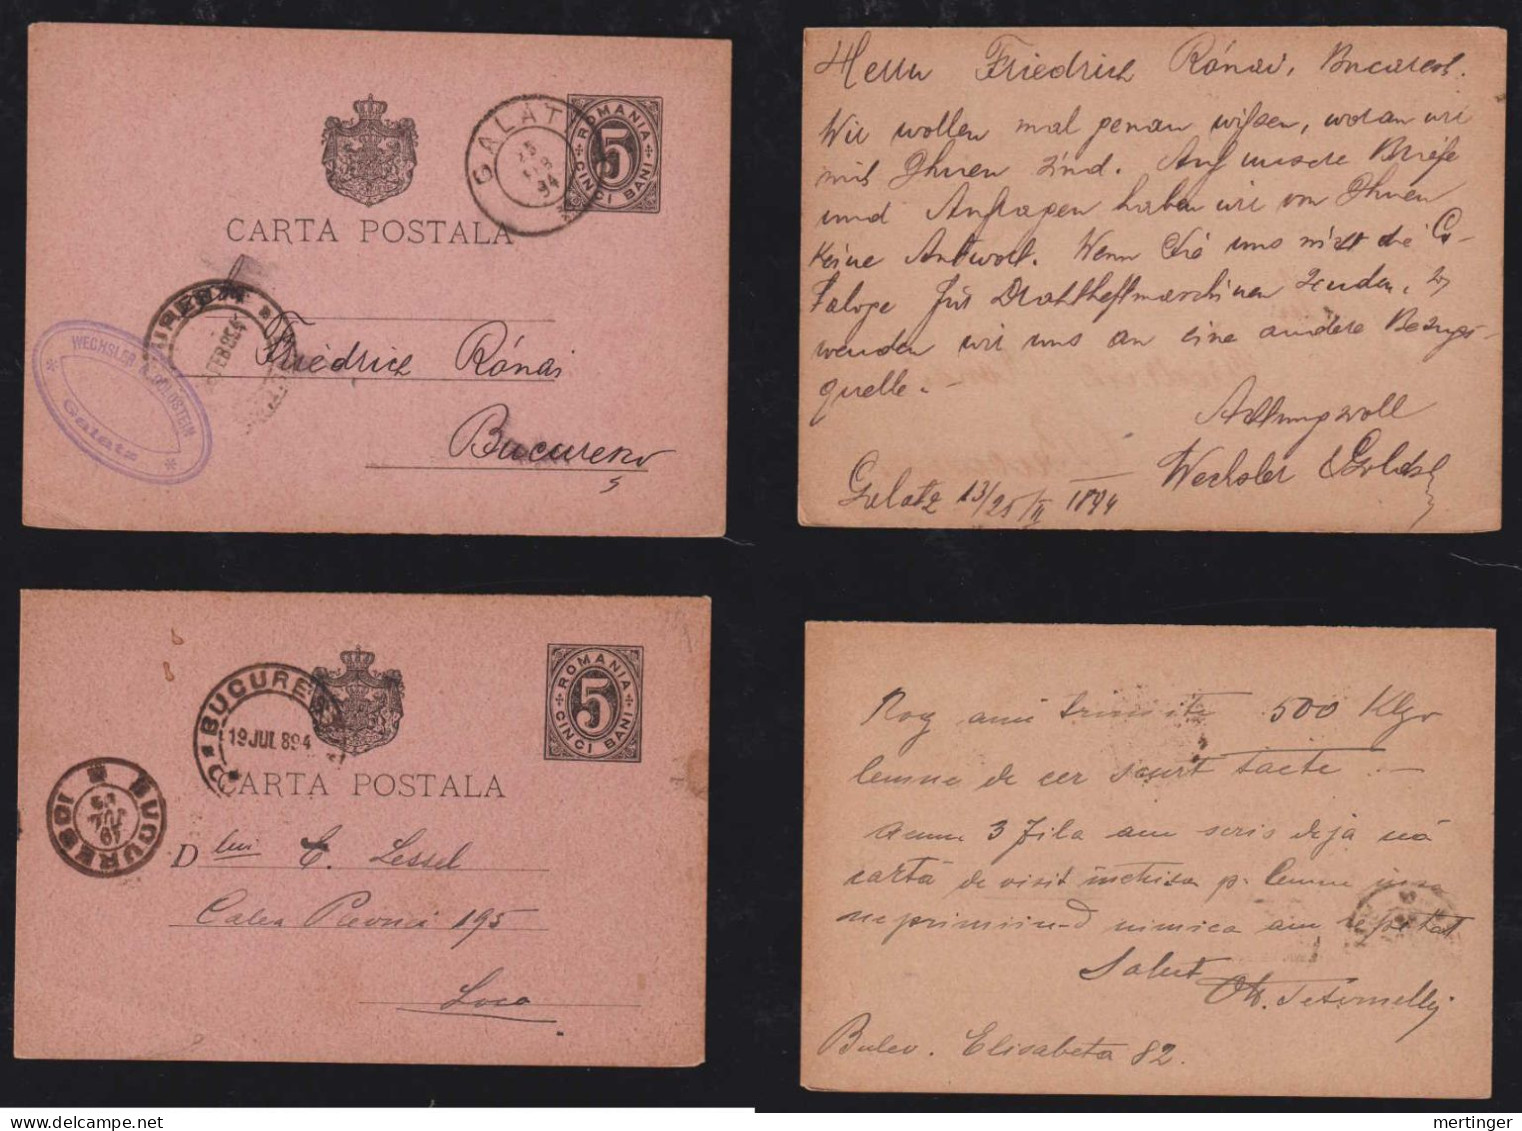 GALAT
25
FEB
94
ROMANIA
5
CINCI BANI
CARTA POSTALA
FEB 894
WECHSLER & GOLDSTEIN
Galatz
Friedrich Rónai
Bucuresci
Herrn Friedrich Rónai, Bucarest.
Wir wollen mal genau wissen, woran wir
mit Ihnen sind. Auf unsere Briefe
und Anfragen haben wir von Ihnen
keine Antwort. Wenn Sie uns nicht die Ca-
taloge für Drahtheftmaschinen senden, so
wenden wir uns an eine andere Bezugs-
quelle.-
Achtungsvoll
Wechsler & Goldst
Galatz 13/25/II 1894
ROMANIA
5
CINCI BANI
BUCURES
19 JUL 894
CARTA POSTALA
BUCURESCI
Dlui C. Lessel
Calea Plevnei 195
Loco
Rog ami trimite 500 Klgr
lemne de cer scurt taete.-
Acum 3 zile am scris deja nă
cartă de visit închisa p. lemne insa
ne primiind nimica am repetat
Salut
Bulev. Elisabeta 82.
mertinger